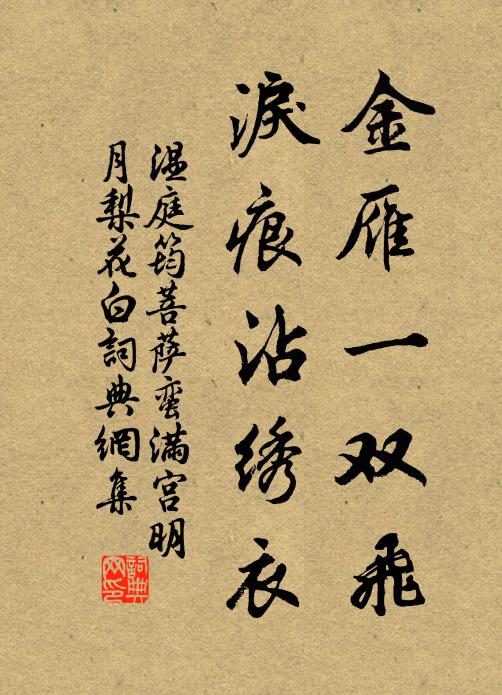 金雁一双飛
淚痕沾绣衣
温庭筠菩萨蛮满宫明
月梨花白詞典網集
詞典网印